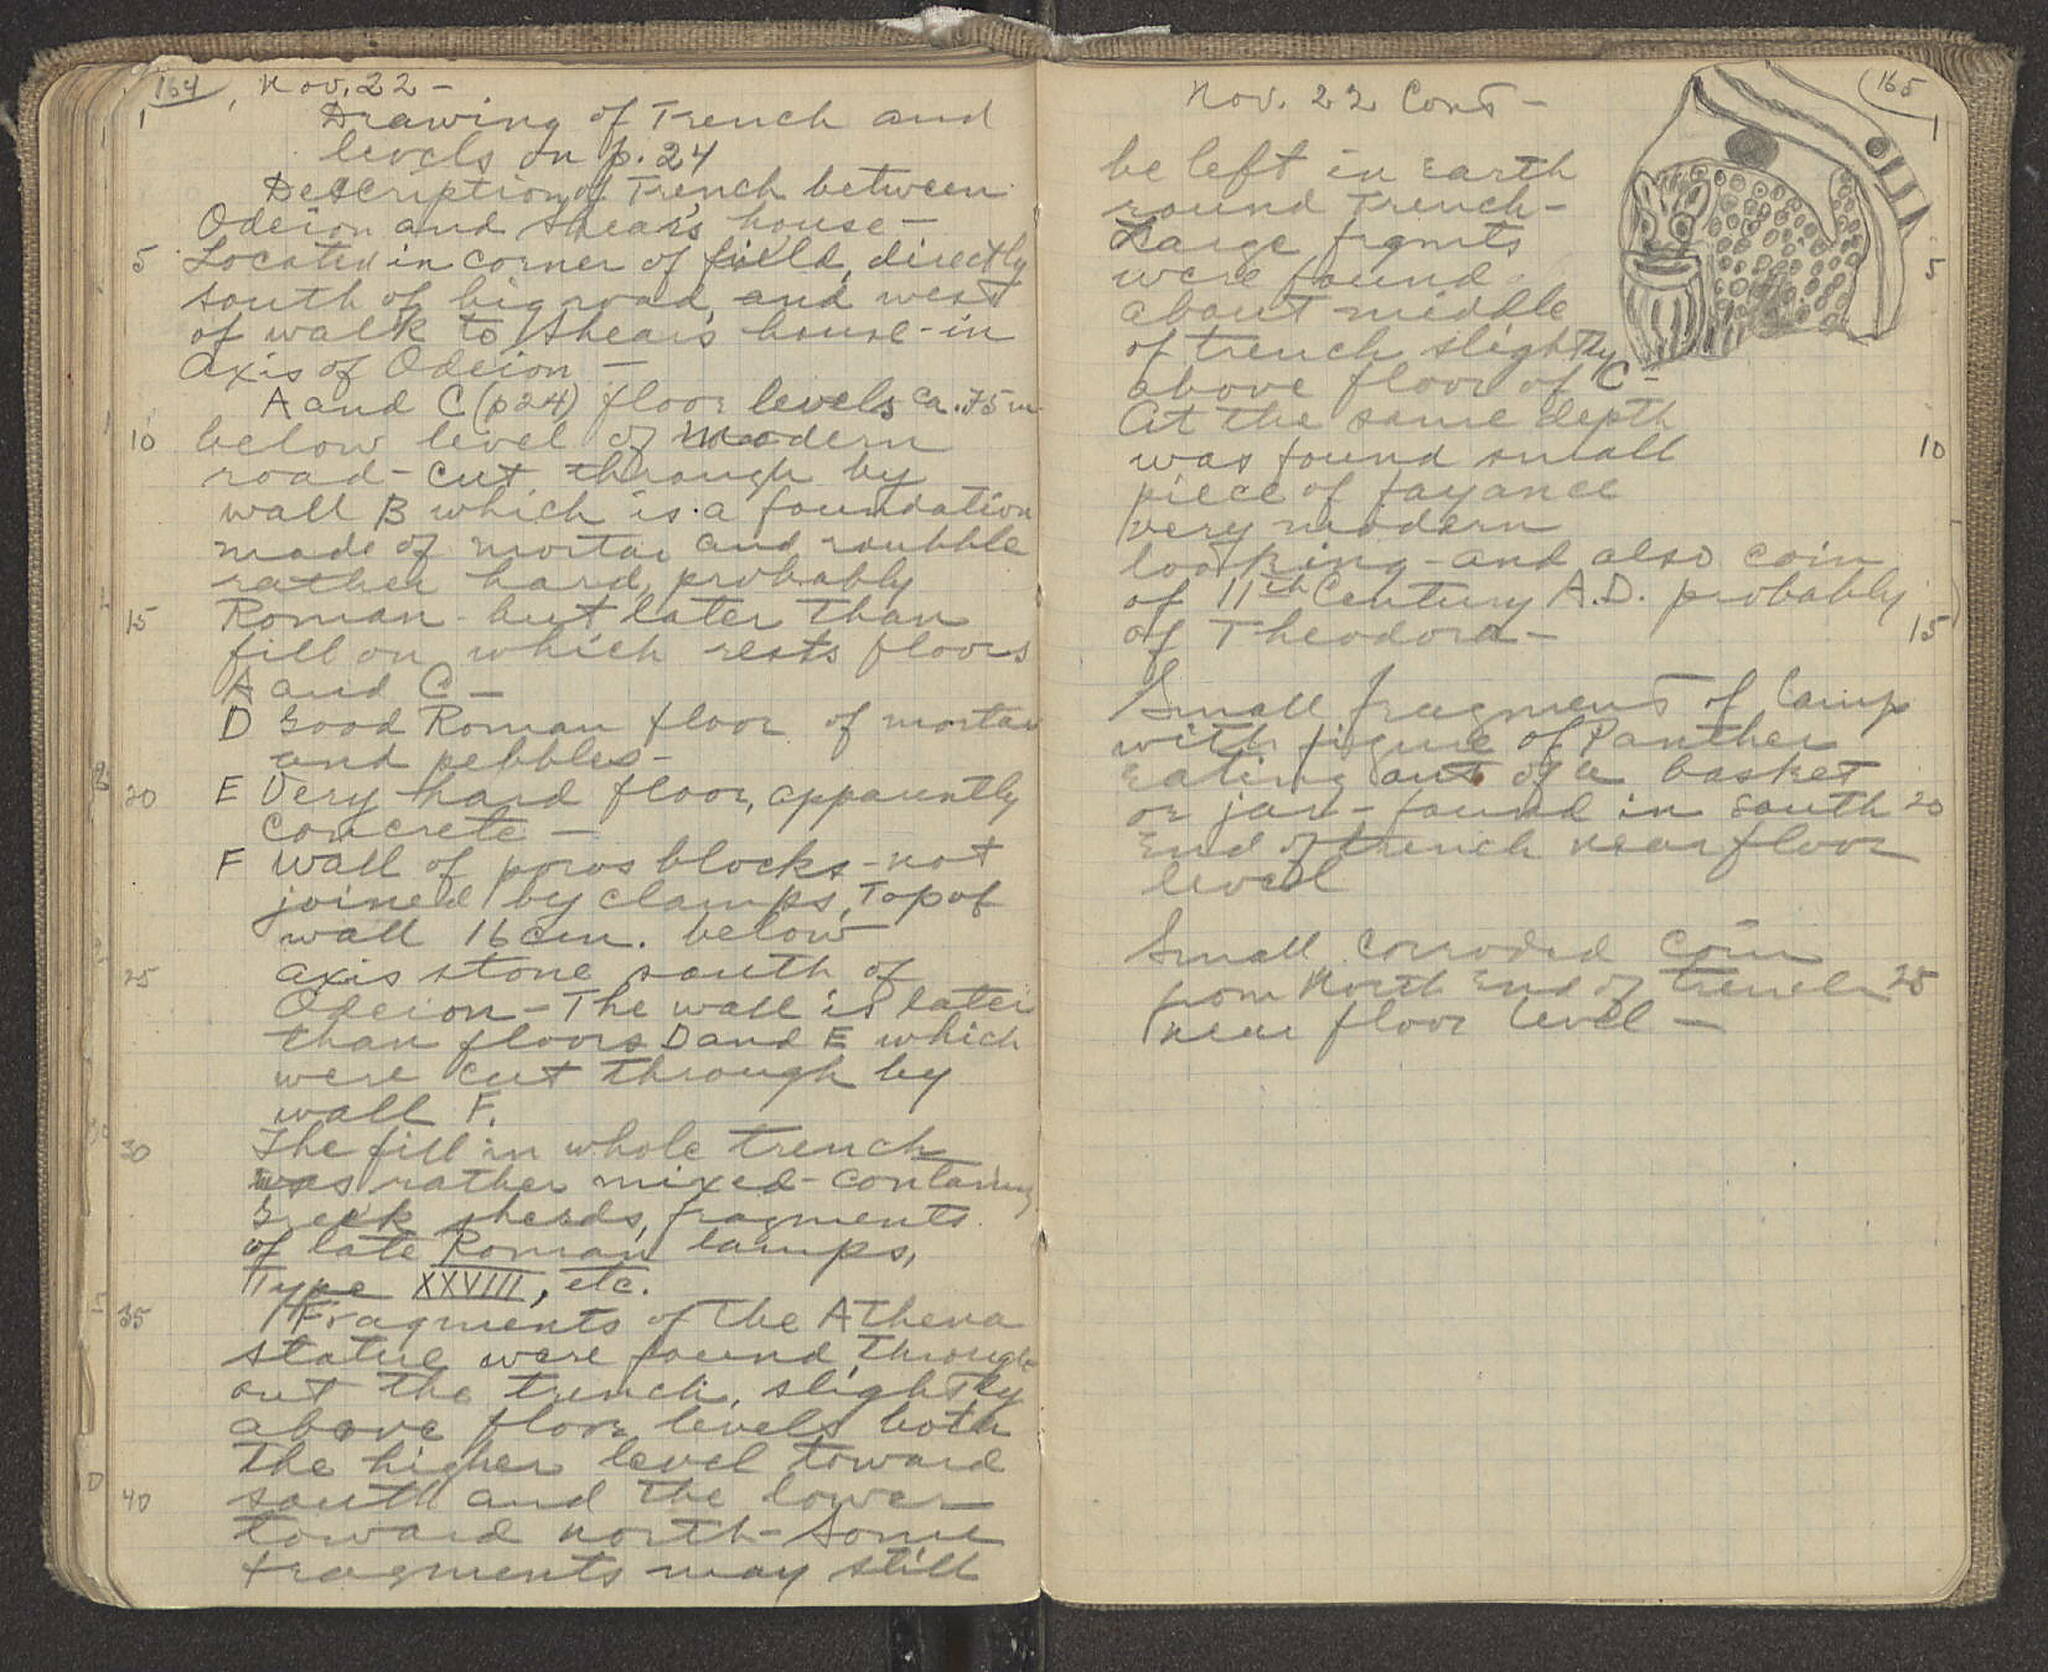 164
Nov. 22 -
1
Drawing of Trench and
levels on p. 24
Description of Trench between
Odeion and Shear's house -
5 Located in corner of field, directly
south of big road, and west
of walk to Shear's house - in
axis of Odeion -
A and C (p 24) floor levels ca. .75 m
10 below level of modern
road - cut through by
wall B which is a foundation
made of mortar and roubble
rather hard, probably
15 Roman - but later than
fill on which rests floors
A and C -
D Good Roman floor of mortar
and pebbles -
20 E Very hard floor, apparently
concrete -
F Wall of poros blocks - not
joined by clamps. Top of
wall 16 cm. below
25 axis stone south of
Odeion - The wall is later
than floors D and E which
were cut through by
wall F.
30 The fill in whole trench
was rather mixed - containing
Greek sherds, fragments
of late Roman lamps,
Type XXVIII, etc.
35 Fragments of the Athena
statue were found through
out the trench, slightly
above floor levels both
the higher level toward
40 south and the lower
toward north - Some
fragments may still
165
Nov. 22 Cont -
1
be left in earth
round trench -
Large frgmts
5
were found
about middle
of trench slightly
above floor of C -
At the same depth
10
was found small
piece of fayance
very modern
looking - and also coin
of 11th Century A.D. probably
15
of Theodora -
Small fragment of lamp
with figure of Panther
eating out of a basket
or jar - found in south 20
end of trench near floor
level
Small corroded coin
from North end of trench 25
near floor level -